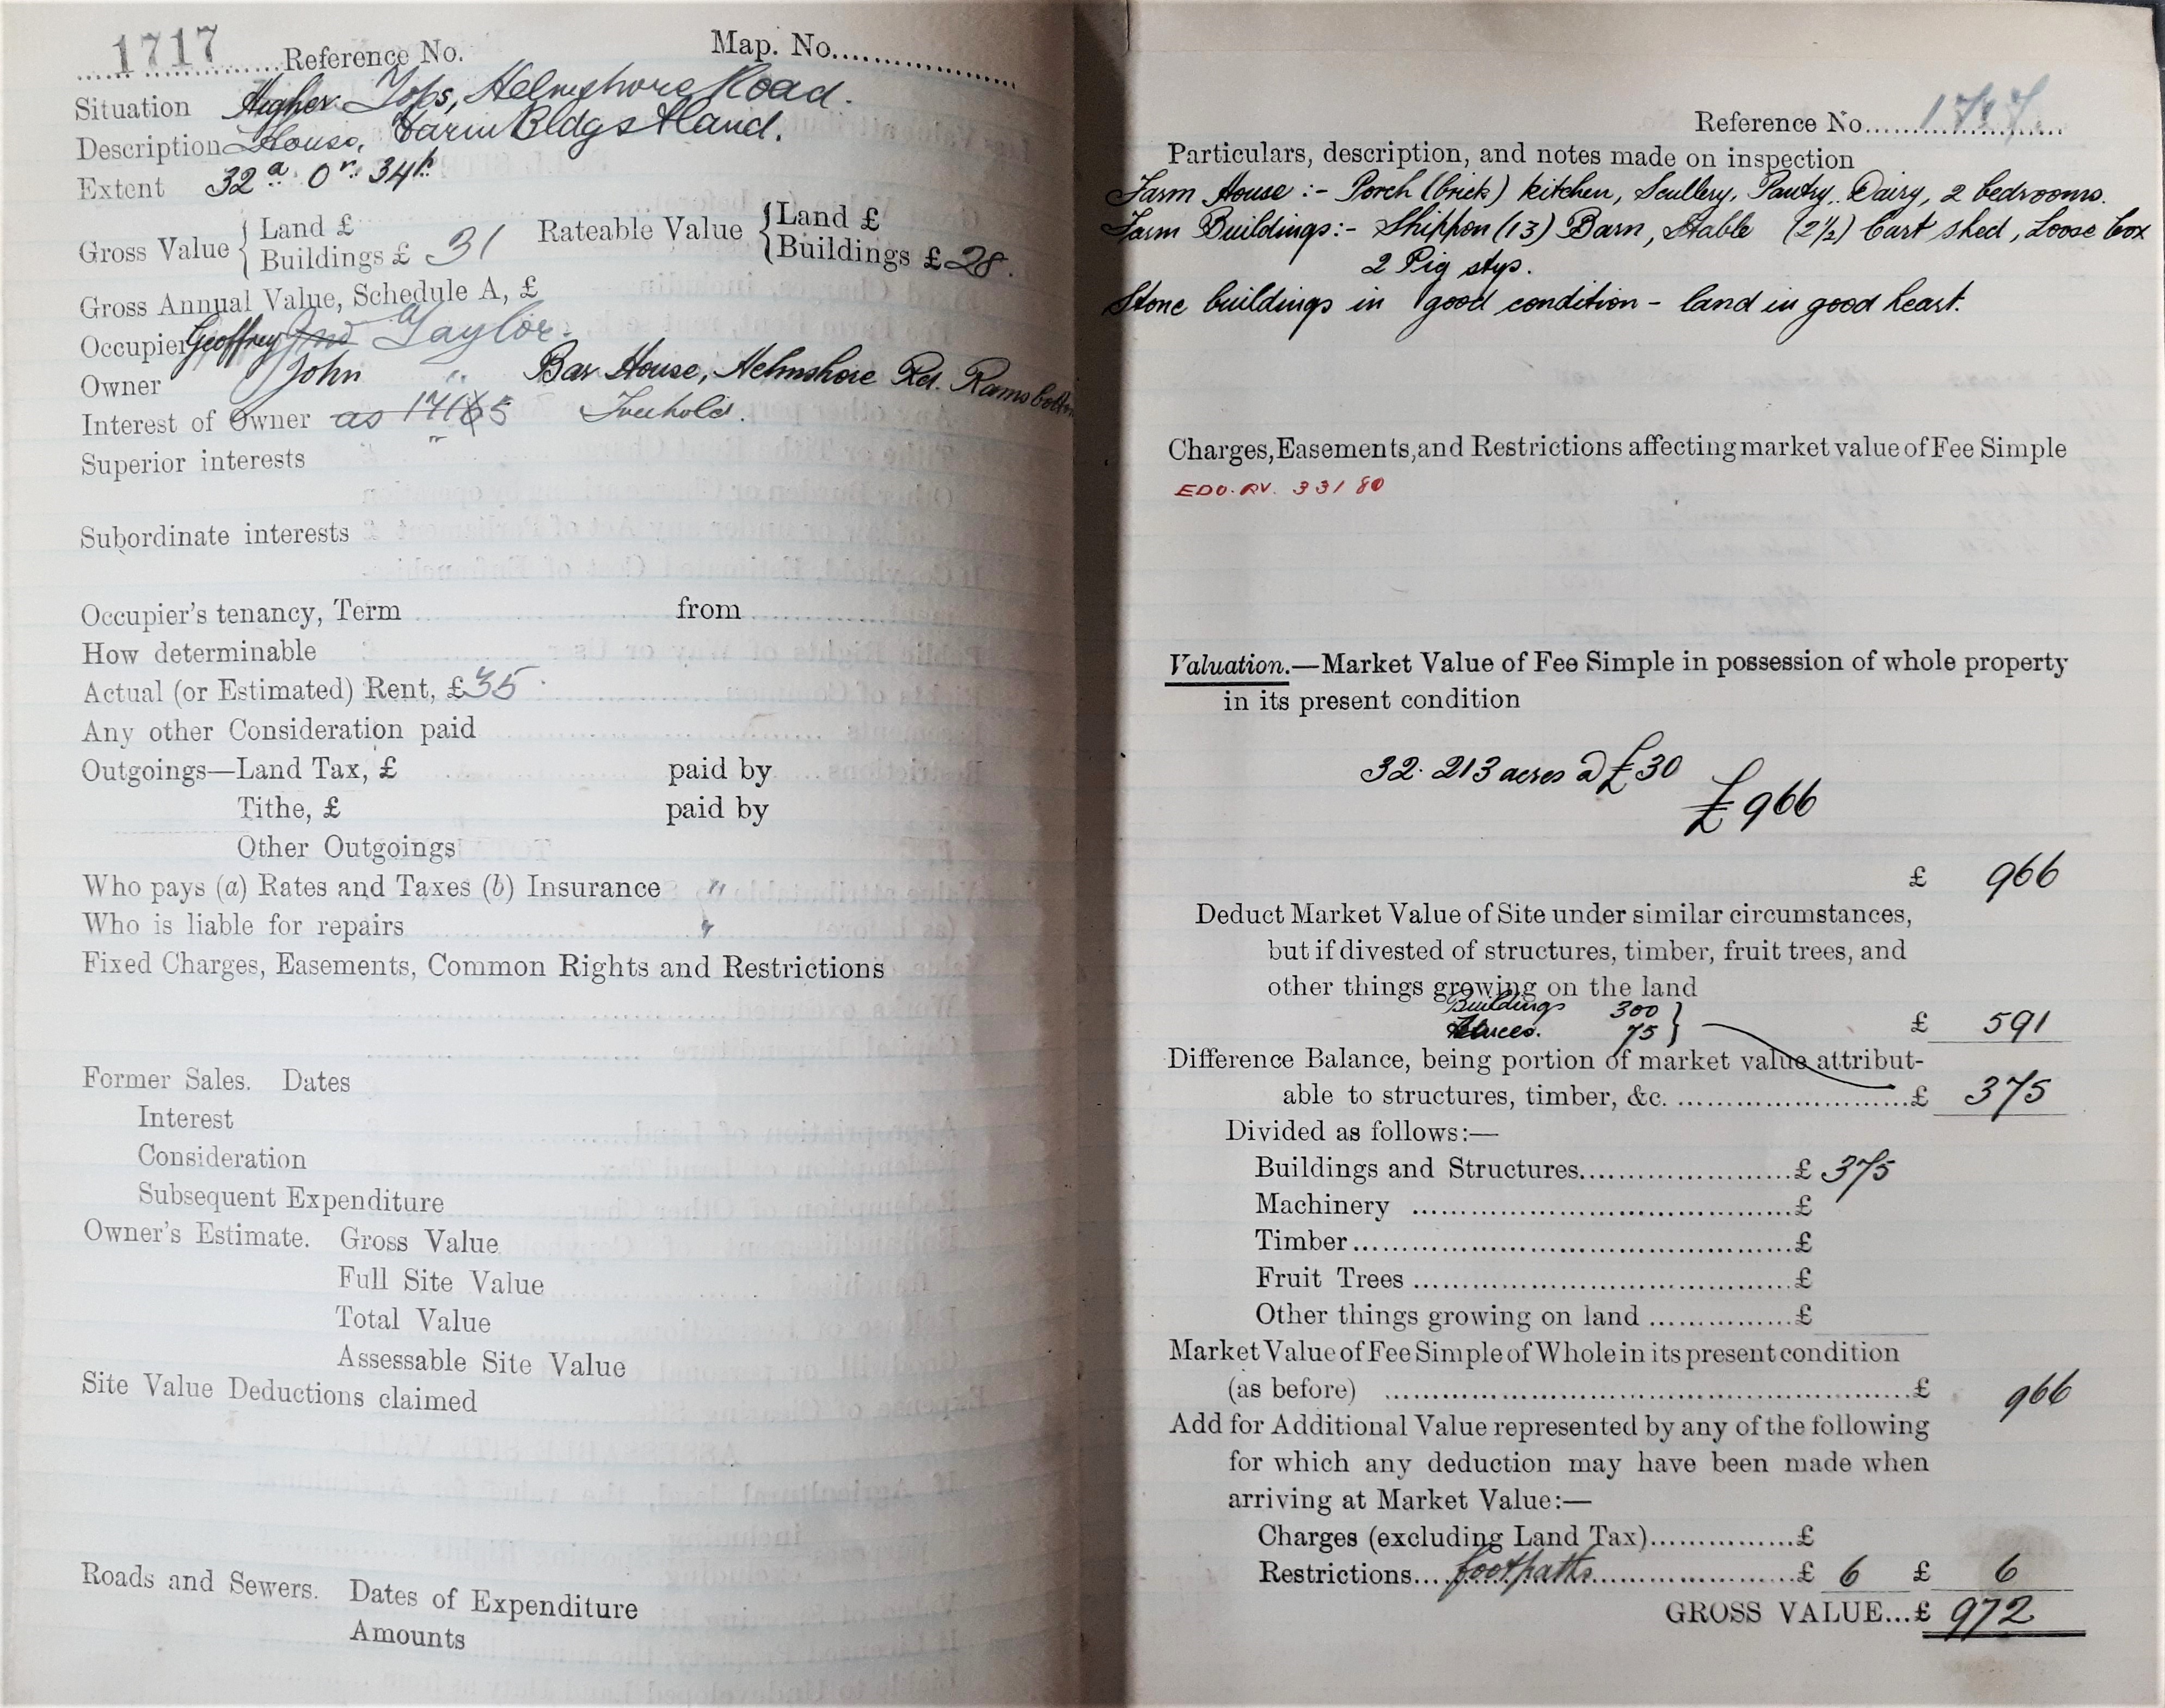 1717 Reference No. Map. No.
Situation Higher Tops, Helmshore Road.
Description House, Farm Bldgs & land.
Extent 32a. 0r. 34p.
Gross Value { Land £ Rateable Value { Land £
Buildings £ 31 Buildings £ 28.
Gross Annual Value, Schedule A, £
Occupier Geoffrey Taylor.
Owner John " Bar House, Helmshore Rd. Ramsbottom
Interest of Owner as 1716 5 Freehold.
Superior interests "
Subordinate interests
Occupier's tenancy, Term from
How determinable
Actual (or Estimated) Rent, £35
Any other Consideration paid
Outgoings—Land Tax, £ paid by
Tithe, £ paid by
Other Outgoings
Who pays (a) Rates and Taxes (b) Insurance "
Who is liable for repairs "
Fixed Charges, Easements, Common Rights and Restrictions
Former Sales. Dates
Interest
Consideration
Subsequent Expenditure
Owner's Estimate. Gross Value
Full Site Value
Total Value
Assessable Site Value
Site Value Deductions claimed
Roads and Sewers. Dates of Expenditure
Amounts
Reference No. 1717.
Particulars, description, and notes made on inspection
Farm House :- Porch (brick) kitchen, Scullery, Pantry, Dairy, 2 bedrooms.
Farm Buildings:- Shippon (13) Barn, Stable (2½) Cart shed, Loose box
2 Pig stys.
Stone buildings in good condition - land in good heart.
Charges, Easements, and Restrictions affecting market value of Fee Simple
EDO. RV. 33180
Valuation.—Market Value of Fee Simple in possession of whole property
in its present condition
32.213 acres @ £30
£966
£ 966
Deduct Market Value of Site under similar circumstances,
but if divested of structures, timber, fruit trees, and
other things growing on the land
Buildings 300 }
75 } £ 591
Difference Balance, being portion of market value attribut-
able to structures, timber, &c. £ 375
Divided as follows:—
Buildings and Structures £ 375
Machinery £
Timber £
Fruit Trees £
Other things growing on land £
Market Value of Fee Simple of Whole in its present condition
(as before) £ 966
Add for Additional Value represented by any of the following
for which any deduction may have been made when
arriving at Market Value:—
Charges (excluding Land Tax) £
Restrictions footpaths £ 6 £ 6
GROSS VALUE...£ 972